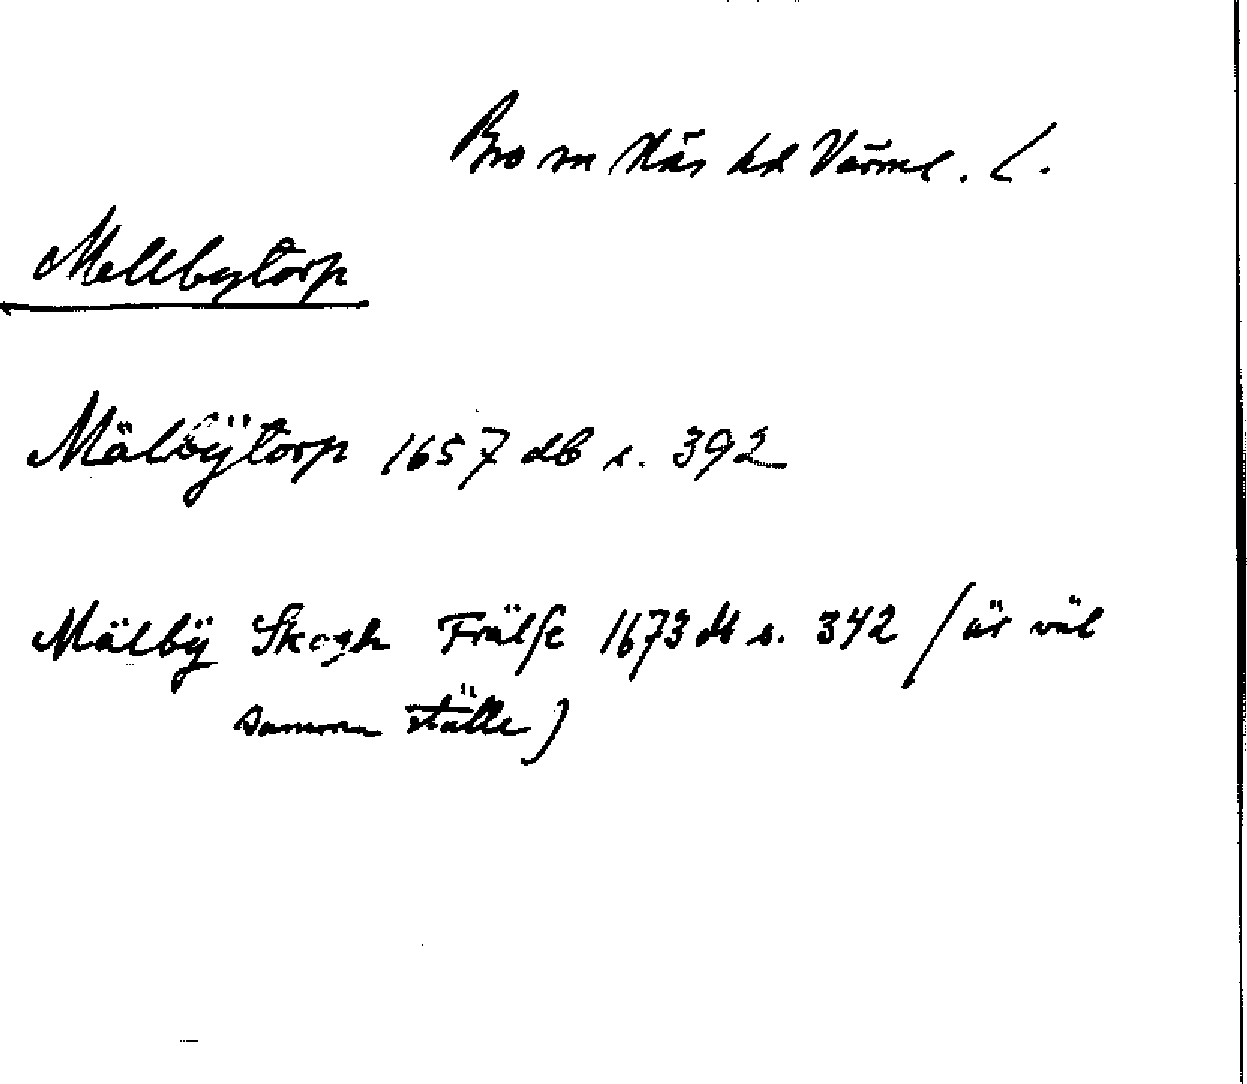 Bro sn Näs hd Värml. L.
Mellbytorp
Mälbÿtorp 1657 db s. 392
Mälbÿ Skogh Frälse 1673 db s. 342 (är väl
samma ställe)